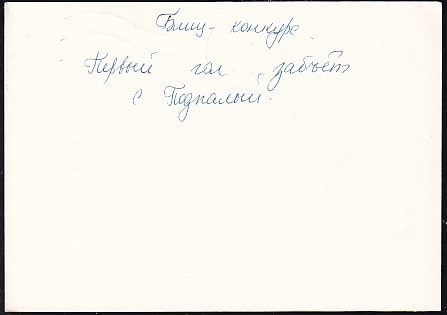 Блиц-конкурс
Первый гол забьёт
С Подпалый.